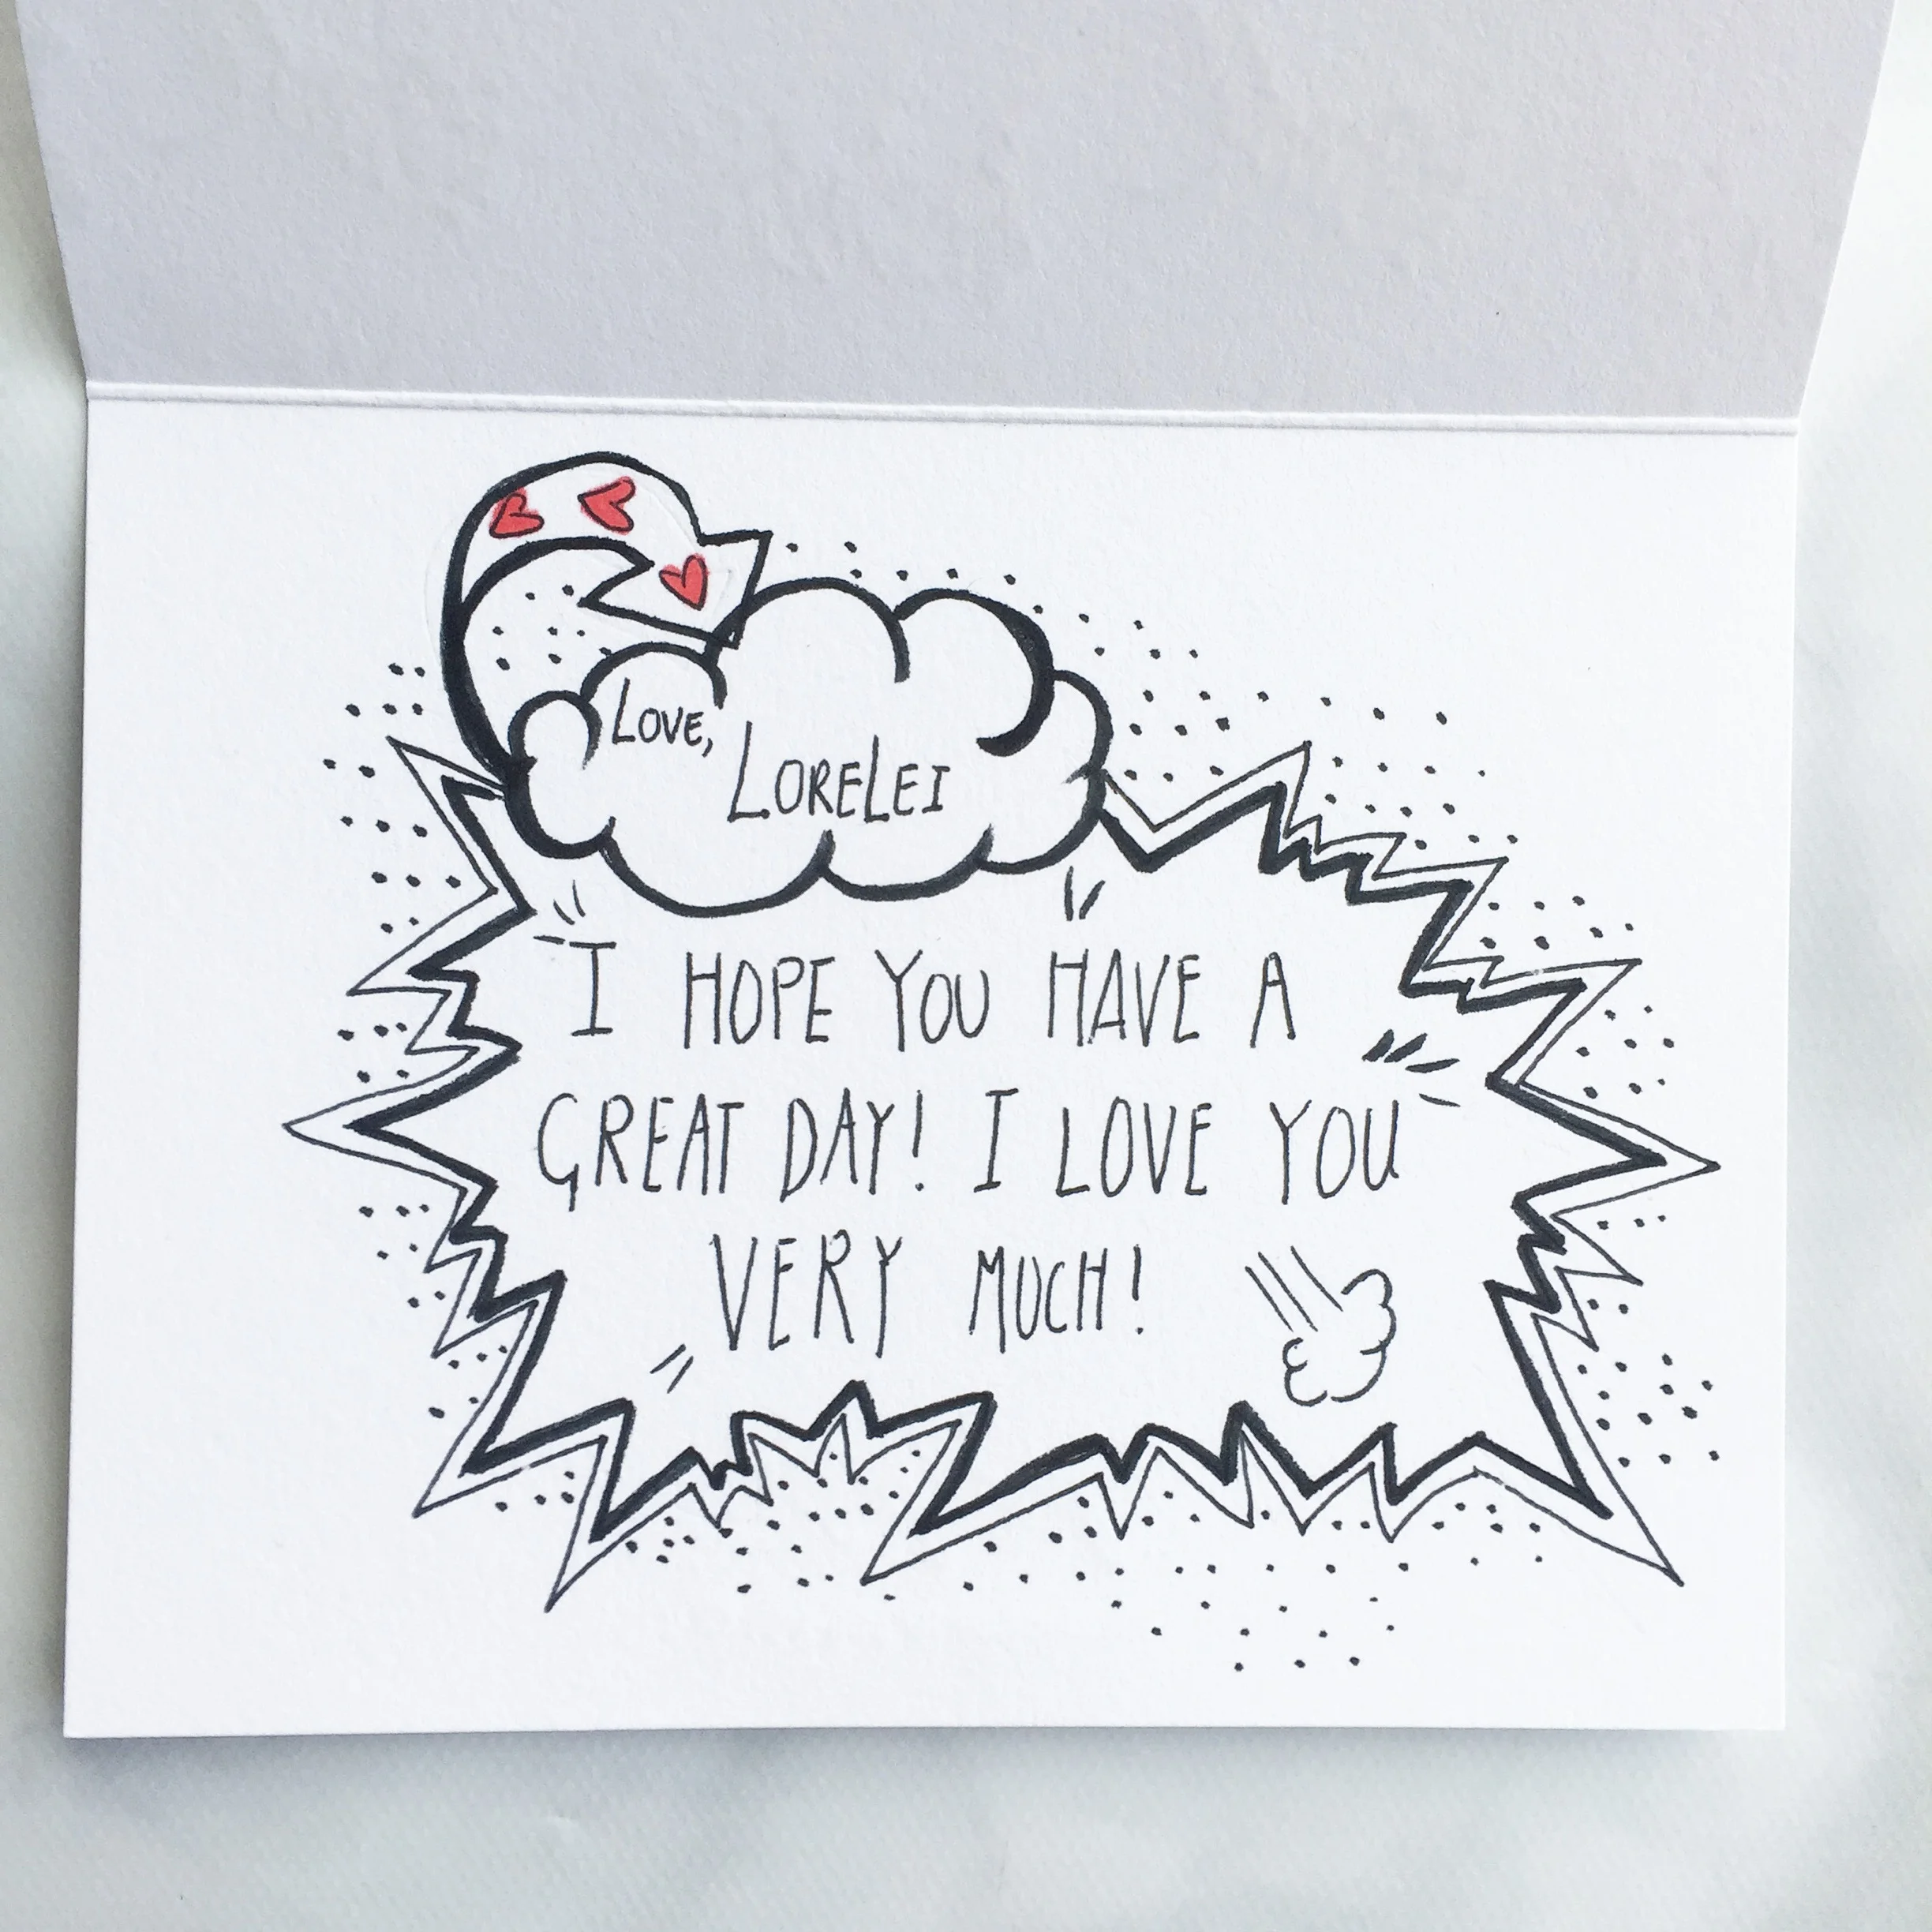 LOVE,
LORELEI
I HOPE YOU HAVE A
GREAT DAY! I LOVE YOU
VERY MUCH!